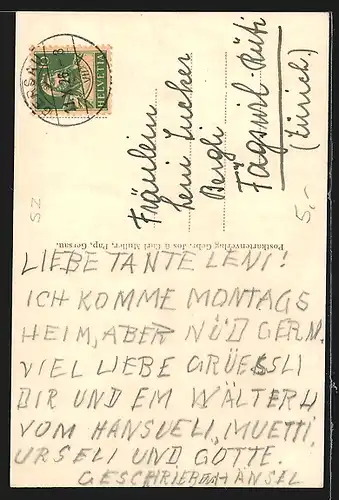 Fräulein
Leni Zucker
Bergli
Fägswil-Rüti
(Zürich)
HELVETIA
10
SZ
5.-
Postkartenverlag Gebr. Jos & Carl Müller, Pap., Gersau.
LIEBE TANTE LENI!
ICH KOMME MONTAGS
HEIM, ABER NÜD GERN.
VIEL LIEBE GRÜESSLI
DIR UND EM WÄLTERLI
VOM HANSUELI, MUETTI,
URSELI UND GÖTTE.
GESCHRIEBEN HÄNSEL